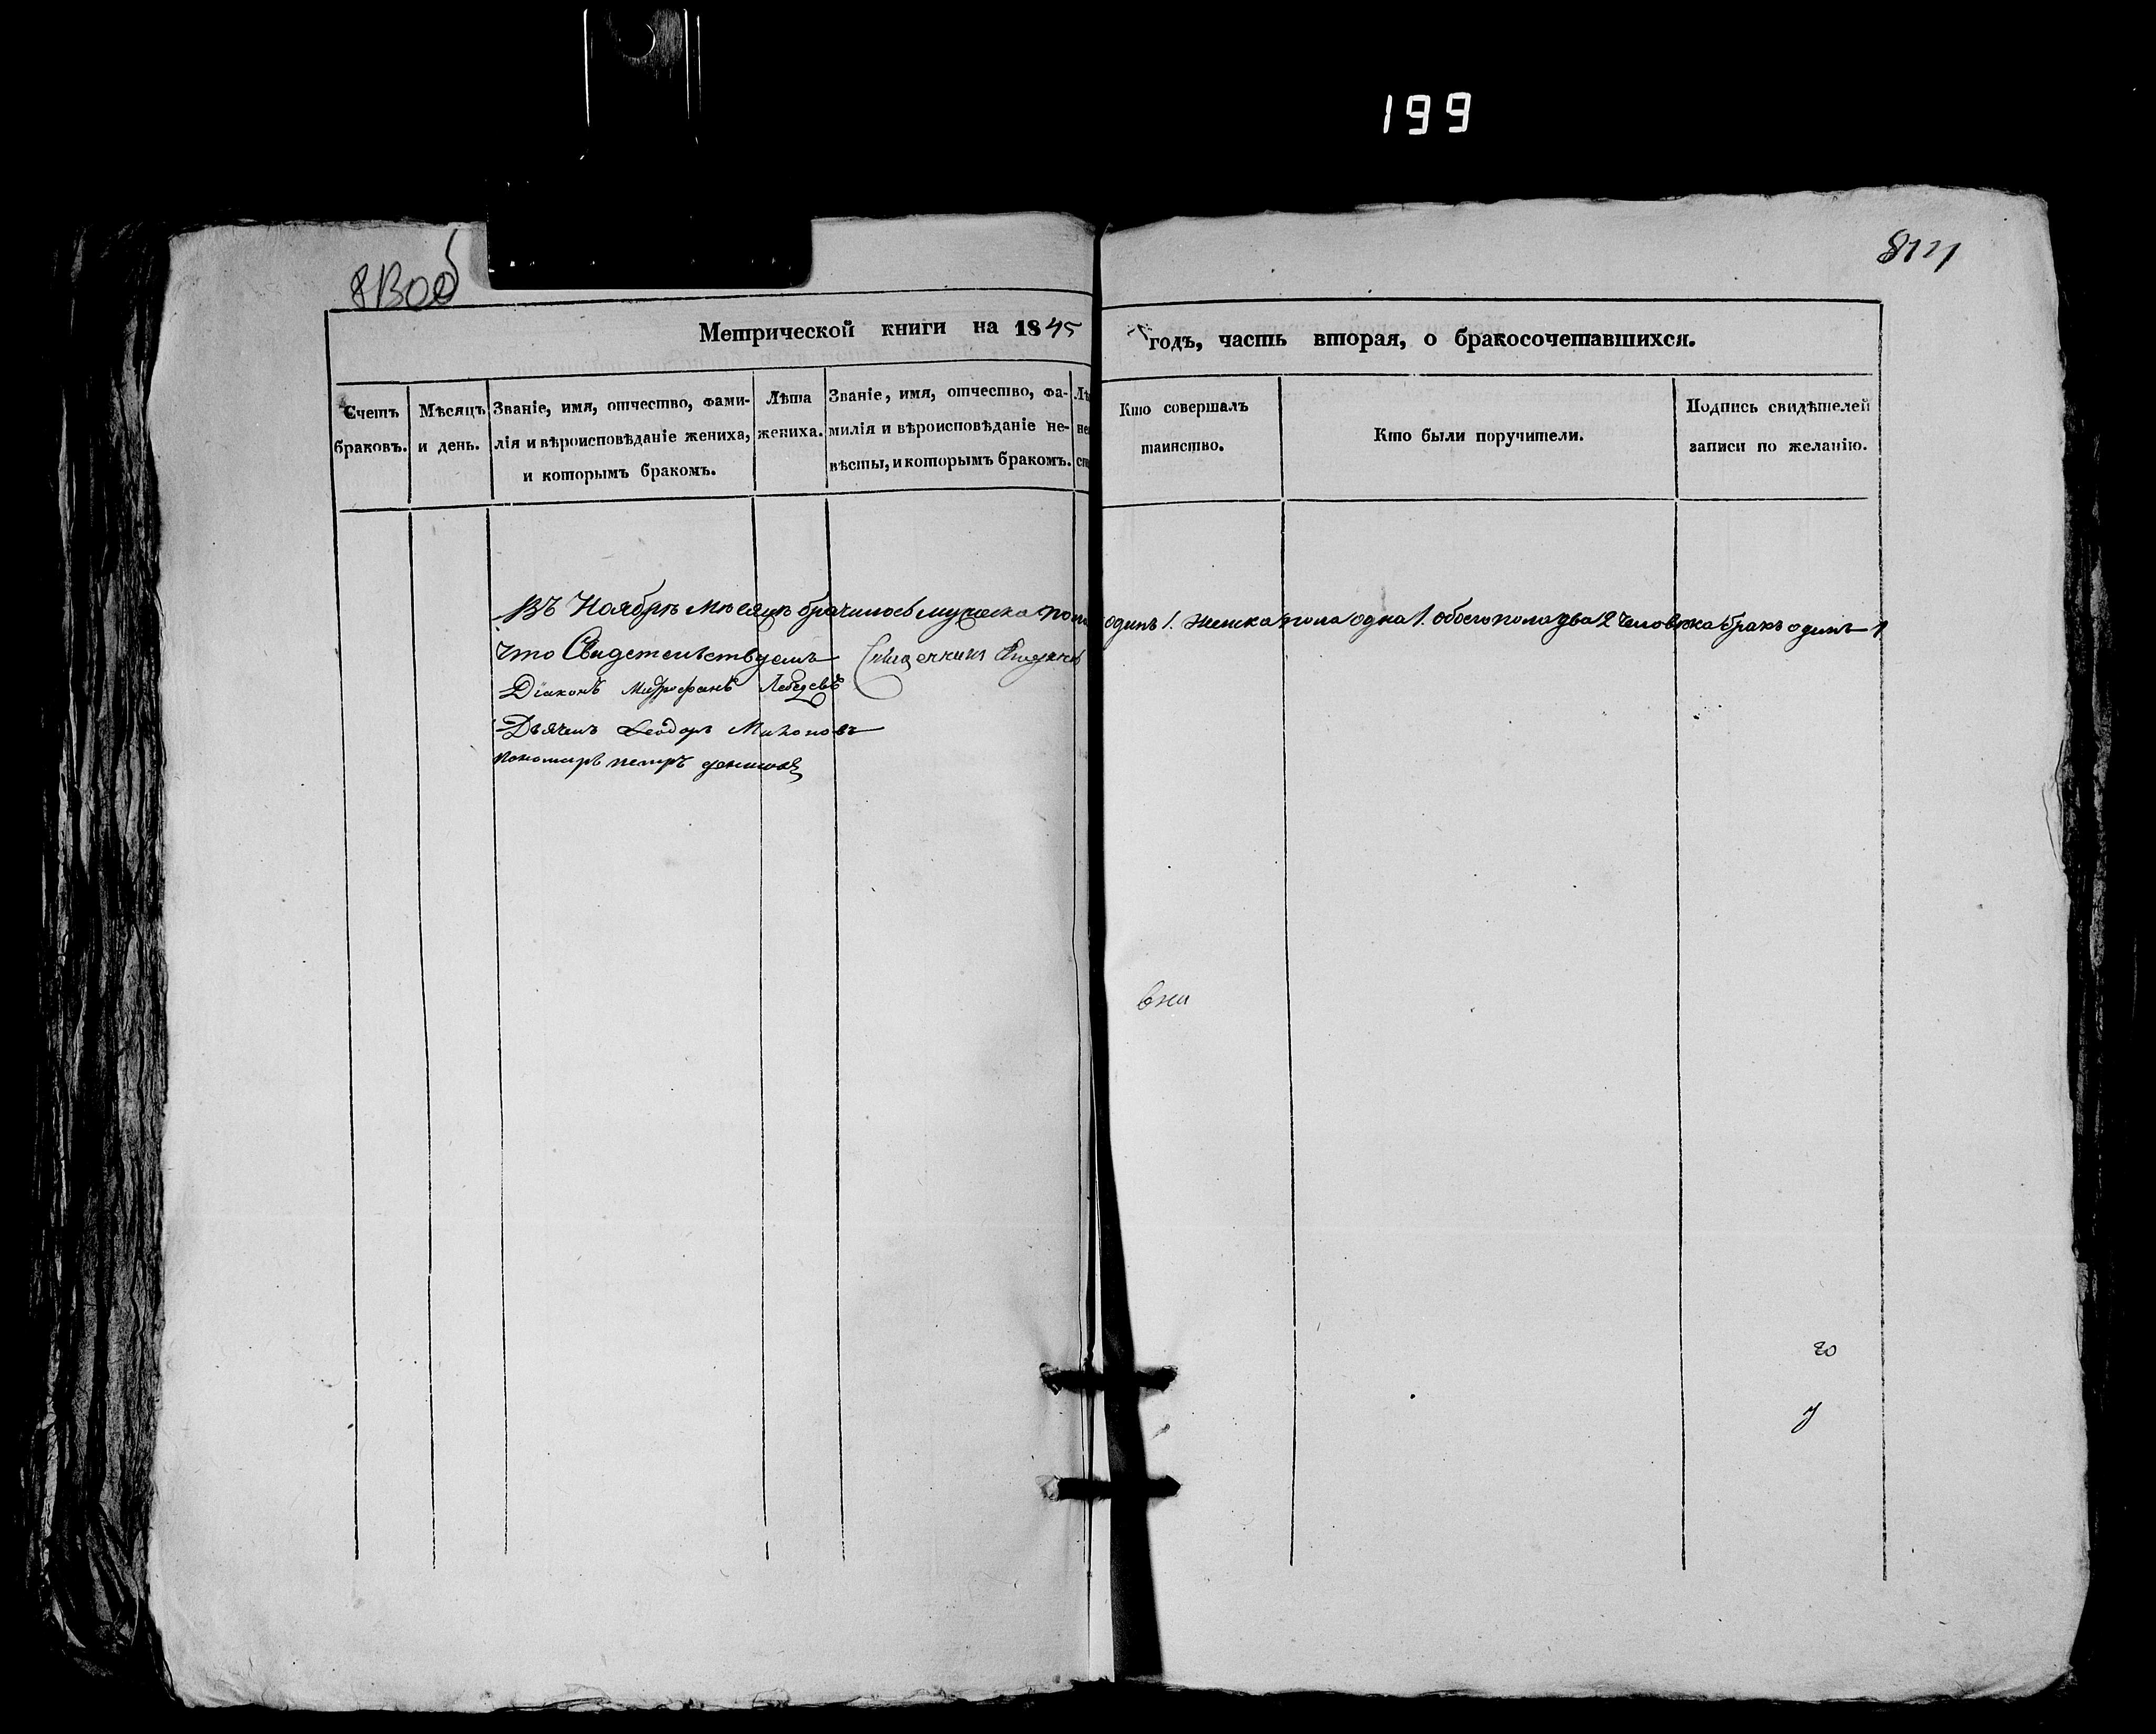 199
813об
814
Метрической книги на 1845 годъ, часть вторая, о бракосочетавшихся.
Счетъ браковъ.
Мѣсяцъ и день.
Званіе, имя, отчество, фами-
лія и вѣроисповѣданіе жениха,
и которымъ бракомъ.
Лѣта
жениха.
Званіе, имя, отчество, фа-
милія и вѣроисповѣданіе не-
вѣсты, и которымъ бракомъ.
Кто совершалъ
таинство.
Кто были поручители.
Подпись свидѣтелей
записи по желанію.
Въ Ноябрѣ мѣсяцѣ брачилось мужеска пола одинъ 1. женска пола одна 1. обоего пола два 2 человѣка бракъ одинъ 1
Что Свидетельствуемъ Священникъ
Діаконъ Митрофанъ Лебедевъ
Дьячекъ Ѳеодоръ
Пономарь петръ